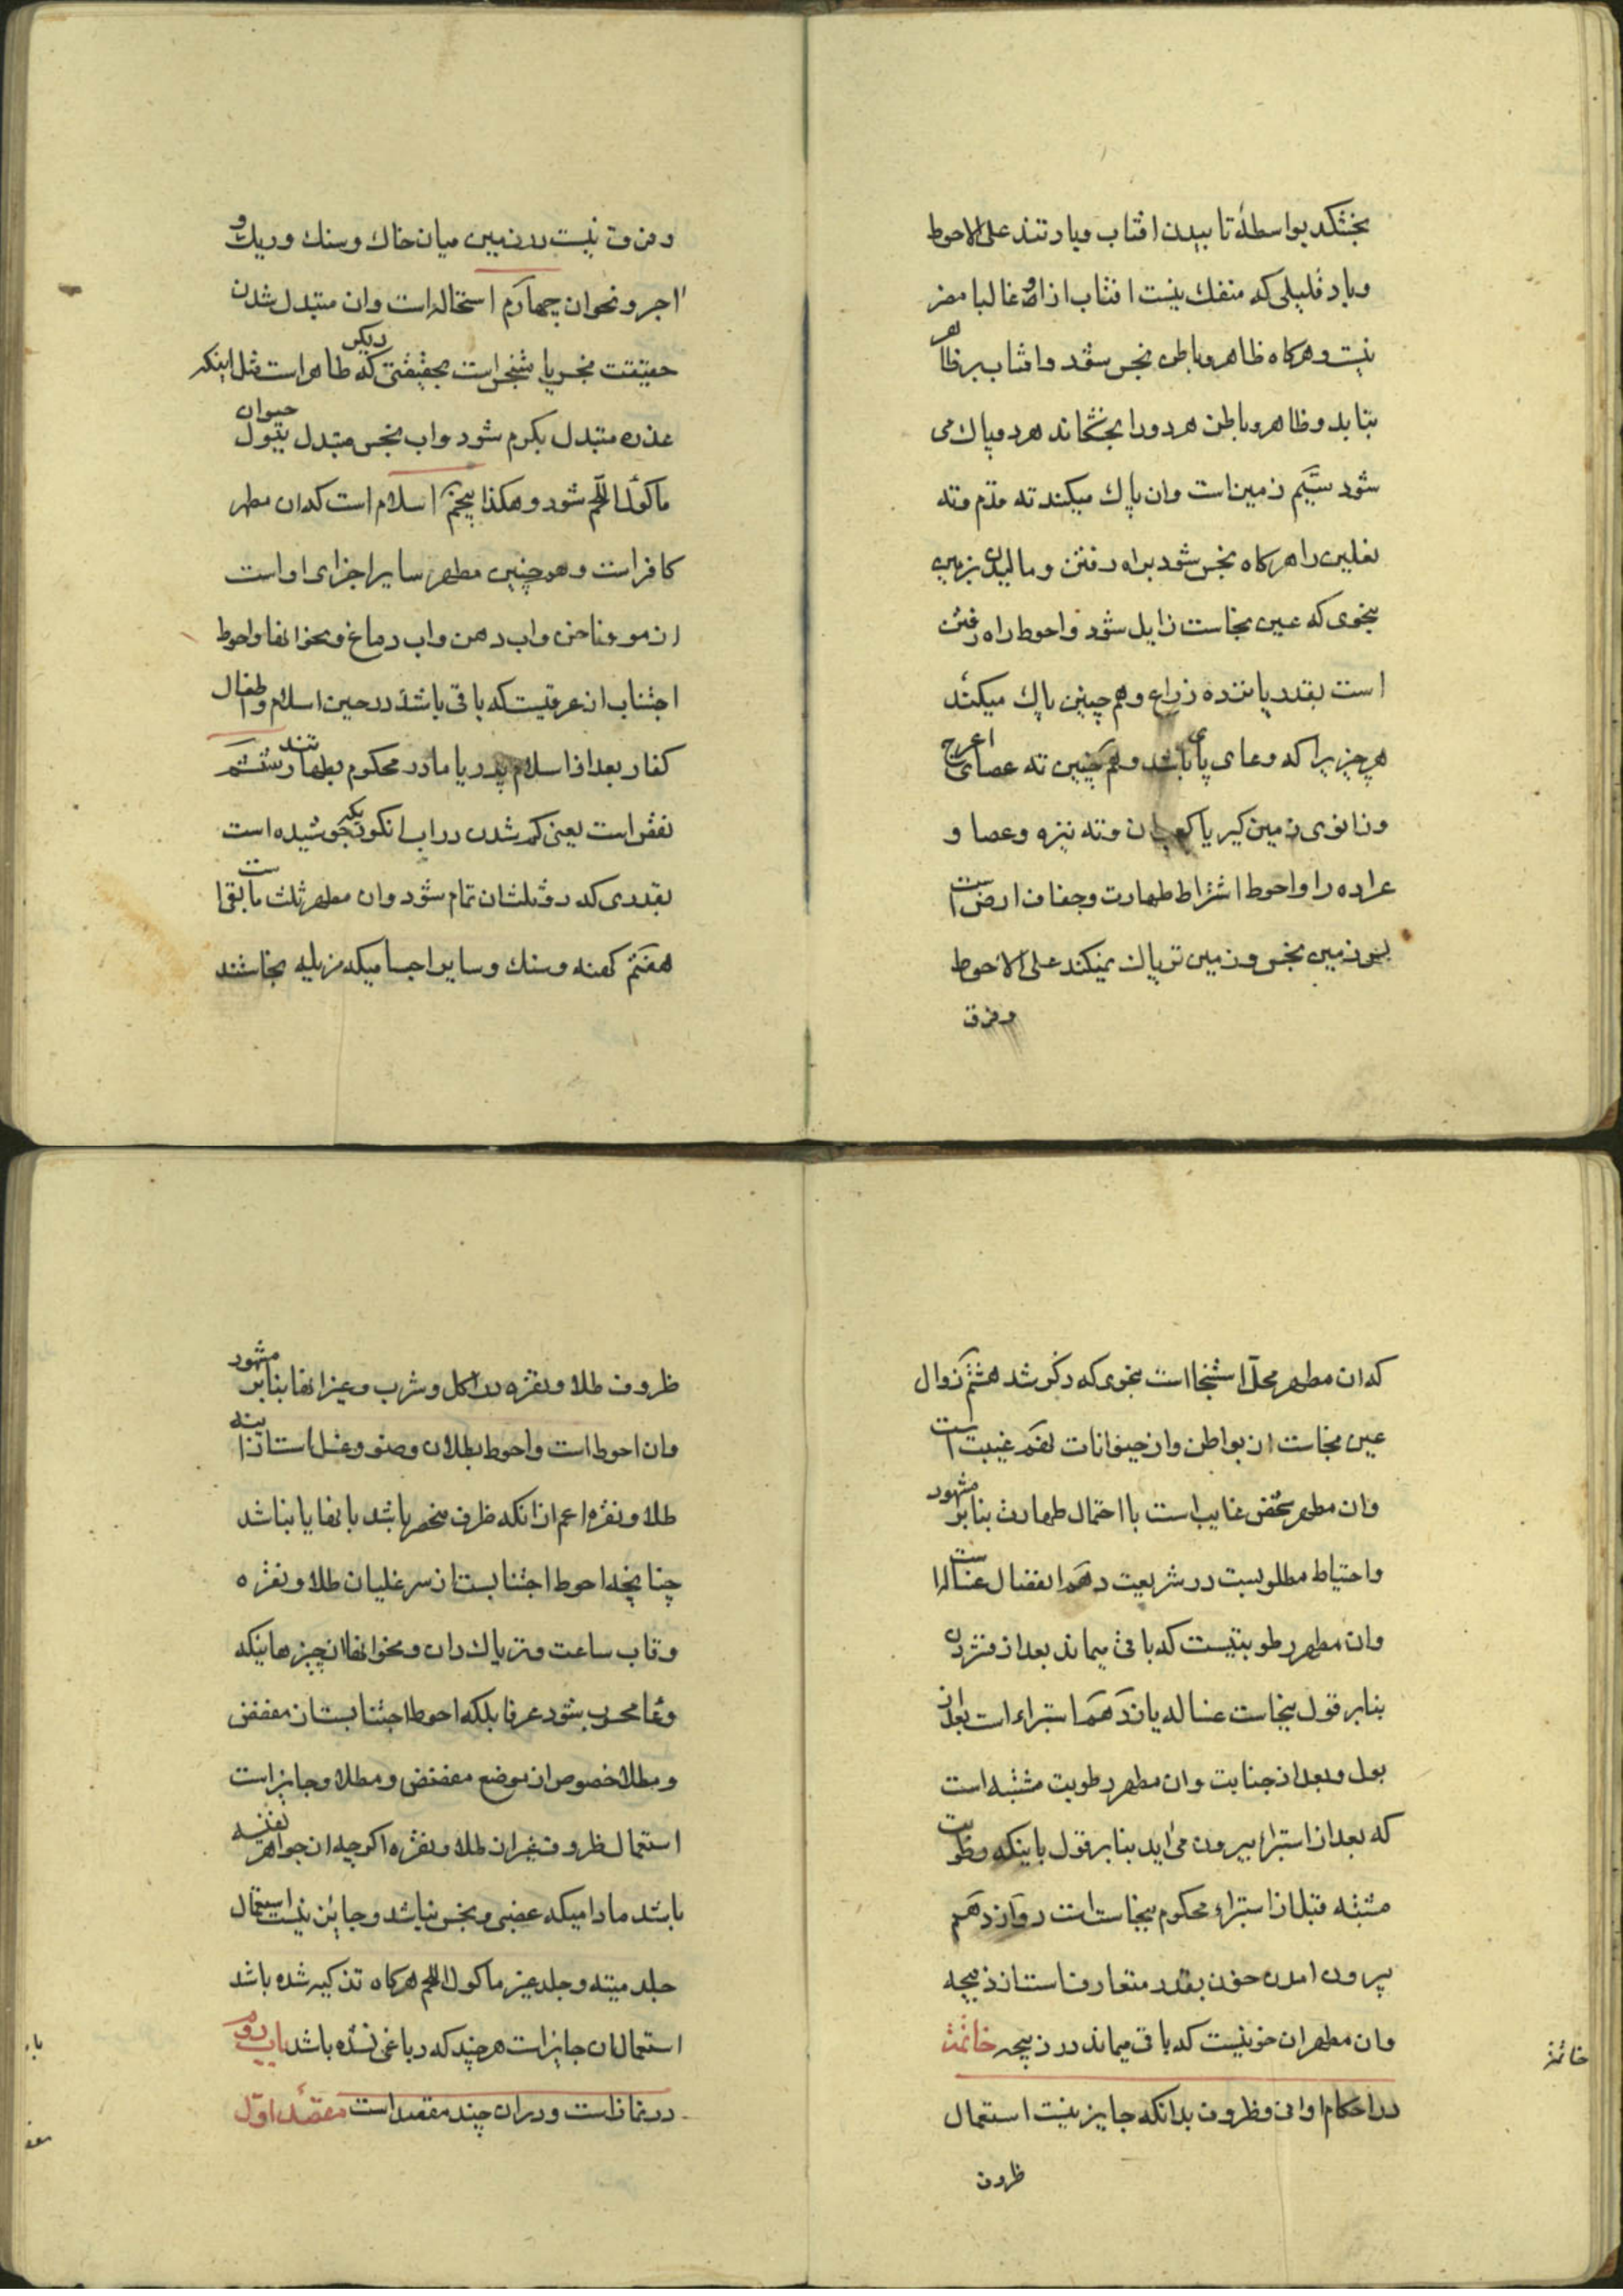 بخشکد بواسطهٔ تابیدن افتاب و باد تند علی الاحوط
و باد قلیلی که منفک نیست افتاب ازاو غالبا مضر
نیست و هرکاه ظاهر و باطن نجس شود و افتاب بر ظاهر
بتابد و ظاهر و باطن هردو را بخشکاند هردو پاک می
شود سیّم زمین است وان پاک میکند ته قدم و ته
نعلین را هرکاه نجس شود براه رفتن و مالیدن بزمین
بنحوی که عین نجاست زایل شود و احوط راه رفتن
است بقدر پانزده ذراع و هم چنین پاک میکند
هر چیزیرا که وعای پای باشد و هم چنین ته عصای اعرج
و زانوی زمین کیر یا کعب ان و ته نیزه و عصا و
عراده را و احوط اشتراط طهارت و جفاف ارض است
پس زمین نجس و زمین تر پاک نمیکند علی الاحوط
و فرق
و فرق نیست در زمین میان خاک و سنک و ریک و
اجر و نحو ان چهارم استحاله است وان متبدل شدن
حقیقت نجس یا متنجس است بحقیقتی دیکر که طاهر است مثل اینکه
عذره متبدل بکرم شود و اب نجس متبدل ببول حیوان
ماکول اللحم شود و هکذا پنجم اسلام است که ان مطهر
کافر است و هم چنین مطهر سایر اجزای او است
از مو و ناخن و اب دهن و اب دماغ و نحو انها و احوط
اجتناب از عرقیست که باقی باشد در حین اسلام و اطفال
کفار بعد از اسلام پدر یا مادر محکوم بطهارتند ششم
نقص است یعنی کم شدن در اب انکوریکه جوشیده است
بقدری که دو ثلث ان تمام شود وان مطهر ثلث مابقی است
هفتم کهنه و سنک و سایر اجسامیکه مزیله نجاستند
که ان مطهر محل استنجا است بنحوی که ذکر شد هشتم زوال
عین نجاست از بواطن و از حیوانات نهم غیبت است
وان مطهر شخص غایب است با احتمال طهارت بنابر مشهور
و احتیاط مطلوبست در شریعت دهم انفصال غساله است
وان مطهر رطوبتیست که باقی میماند بعد از فشردن
بنابر قول بنجاست غساله یازدهم استبراء است بعد از
بول و بعد از جنابت وان مطهر رطوبت مشتبه است
که بعد از استبراء بیرون می اید بنابر قول باینکه رطوبت
مشتبه قبل از استبراء محکوم بنجاست است دوازدهم
بیرون امدن خون بقدر متعارفست از ذبیحه
وان مطهر ان خونیست که باقی میماند در ذبیحه خاتمة
در احکام اوانی و ظروف بدانکه جایز نیست استعمال
ظروف
خاتمة
ظروف طلا و نقره در اکل و شرب و غیر انها بنابر مشهور
وان احوط است و احوط بطلان وضو و غسل است از انیه
طلا و نقره اعم از انکه ظرف منحصر باشد بانها یا نباشد
چنانچه احوط اجتنابست از سر غلیان طلا و نقره
و قاب ساعت و تریاک دان و نحو انها از چیزهاییکه
وعا محسوب بشود عرفا بلکه احوط اجتنابست از مفضض
و مطلا خصوص از موضع مفضض و مطلا و جایز است
استعمال ظروف غیر از طلا و نقره اکرچه از جواهر نفیسه
باشد مادامیکه غصبی و نجس نباشد و جایز نیست استعمال
جلد میته و جلد غیر ماکول اللحم هرکاه تذکیه شده باشد
استعمال ان جایز است هرچند که دباغی نشده باشد باب دوم
در نماز است و در ان چند مقصد است مقصد اوّل